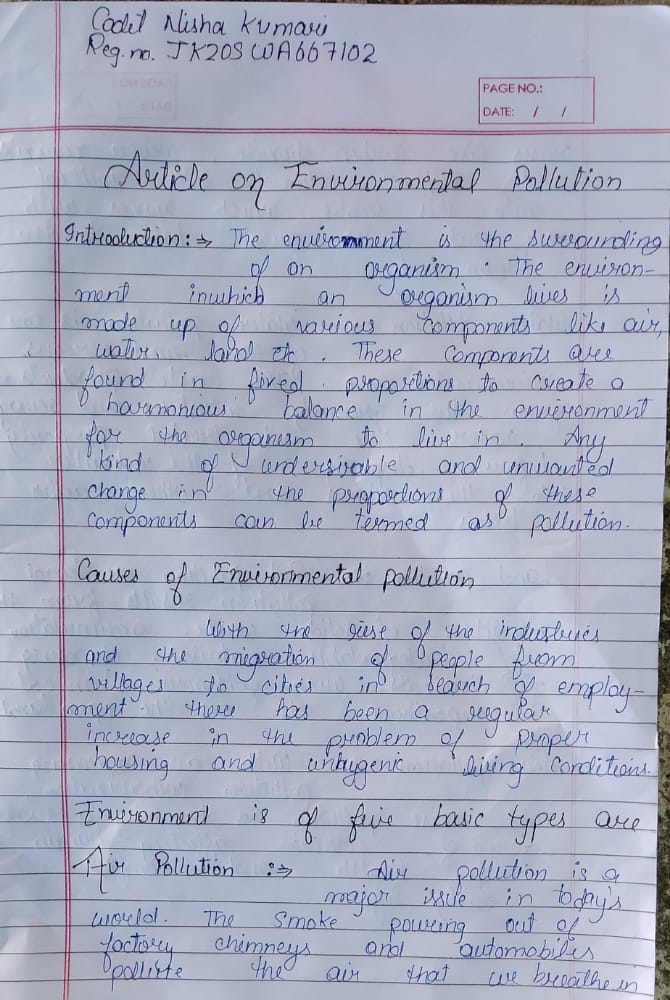 Cadet Nisha Kumari
Reg.no. JK20SWA667102
PAGE NO.:
DATE: / /
Article on Environmental Pollution
Introduction:⇒ The environment is the surrounding
of an organism. The environ-
ment inwhich an organism lives is
made up of various components like air,
water, land etc. These components are
found in fixed proportions to create a
harmonious balance in the environment
for the organism to live in. Any
kind of undersirable and unwanted
change in the proportions of these
components can be termed as pollution.
Causes of Environmental pollution
With the rise of the industries
and the migration of people from
villages to cities in search of employ-
ment. there has been a regular
increase in the problem of proper
housing and unhygenic living conditions.
Environment is of five basic types are
Air Pollution :⇒ Air pollution is a
major issue in today's
world. The Smoke pouring out of
factory chimneys and automobiles
pollute the air that we breathe in